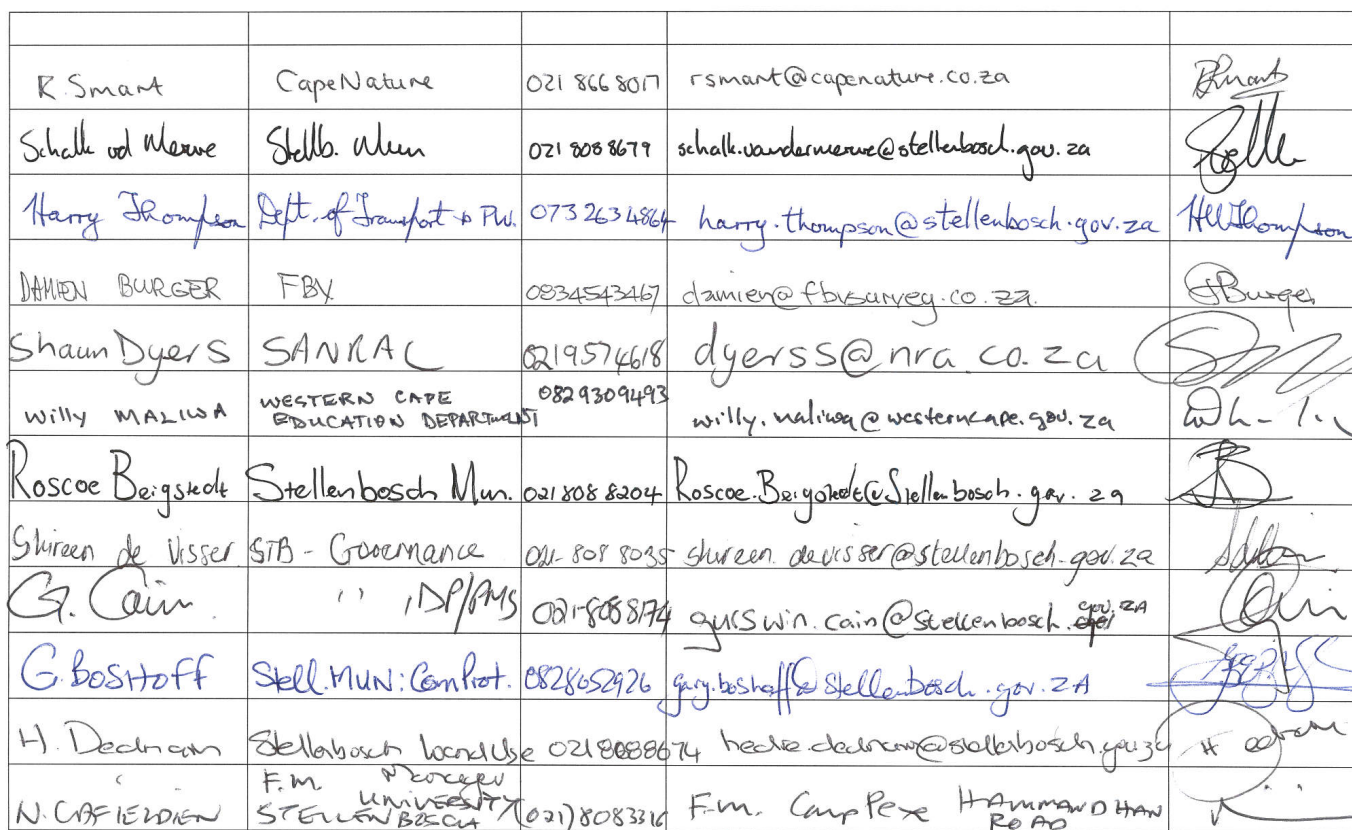 R. Smart CapeNature 021 866 8017 rsmart@capenature.co.za
Schalk vd Merwe Stellb. Mun 021 808 8679 schalk.vandermerwe@stellenbosch.gov.za
Harry Thompson Dept. of Transport & PW. 073 263 4864 harry.thompson@stellenbosch.gov.za HWThompson
DAMIEN BURGER FBV 0834543467 damien@fbvsurvey.co.za. Burger
Shaun Dyers SANRAL 0219574618 dyerss@nra.co.za
Willy MALIWA WESTERN CAPE EDUCATION DEPARTMENT 0829309493 willy.maliwa@westerncape.gov.za
Roscoe Bergstedt Stellenbosch Mun. 021 808 8204 Roscoe.Bergstedt@Stellenbosch.gov.za
Shireen de Visser STB - Governance 021-808 8035 shireen.devisser@stellenbosch.gov.za
G. Cain " IDP/PMS 021-8088174 gurswin.cain@stellenbosch.gov.ZA
G. BOSHOFF Stell.MUN: ComProt. 0828652926 gary.boshoff@stellenbosch.gov.ZA
H. Dednam Stellenbosch Land Use 0218088674 hedre.dednam@stellenbosch.gov.za
F.M. Manager
N. CAFIELDIEN UNIVERSITY (021) 8083316 F.M. Complexe HAMMANDHAN
STELLENBOSCH ROAD